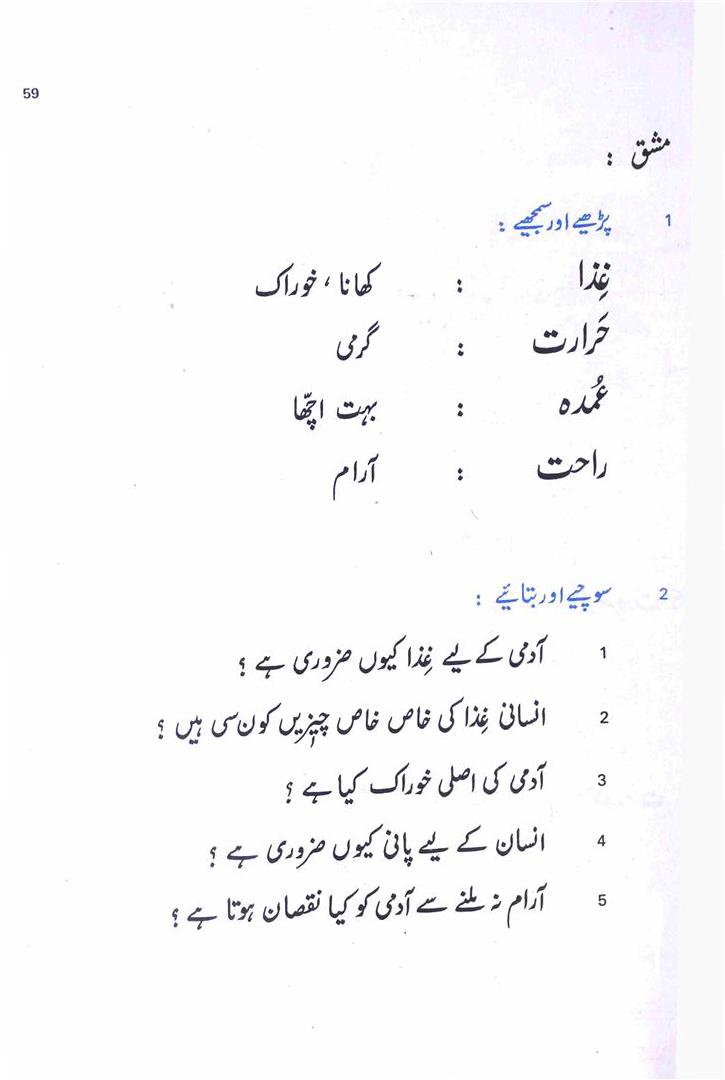 59
مشق :
1 پڑھیے اور سمجھیے :
غِذا : کھانا ، خوراک
حَرارت : گرمی
عُمدہ : بہت اچّھا
راحت : آرام
2 سوچیے اور بتائیے :
1 آدمی کے لیے غِذا کیوں ضروری ہے ؟
2 انسانی غِذا کی خاص خاص چیزیں کون سی ہیں ؟
3 آدمی کی اصلی خوراک کیا ہے ؟
4 انسان کے لیے پانی کیوں ضروری ہے ؟
5 آرام نہ ملنے سے آدمی کو کیا نقصان ہوتا ہے ؟